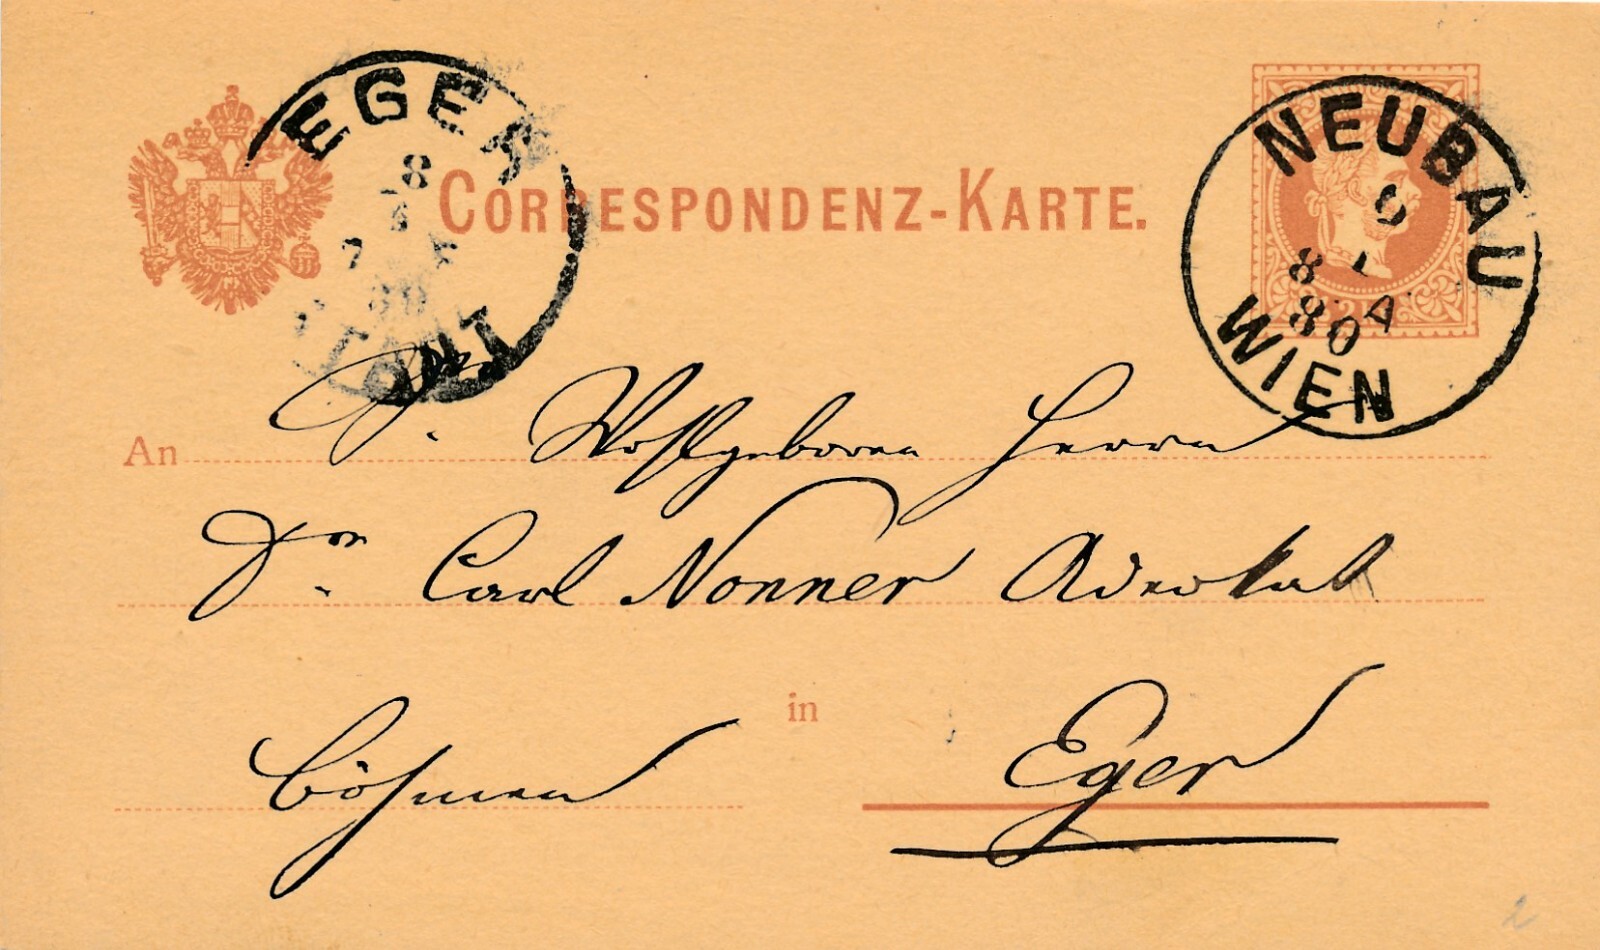 EGER
STADT
CORRESPONDENZ-KARTE.
NEUBAU
8 80 A
WIEN
An
Wohlgeboren Herrn
Dr. Carl Nonner Advokat
in
Böhmen
Eger
2